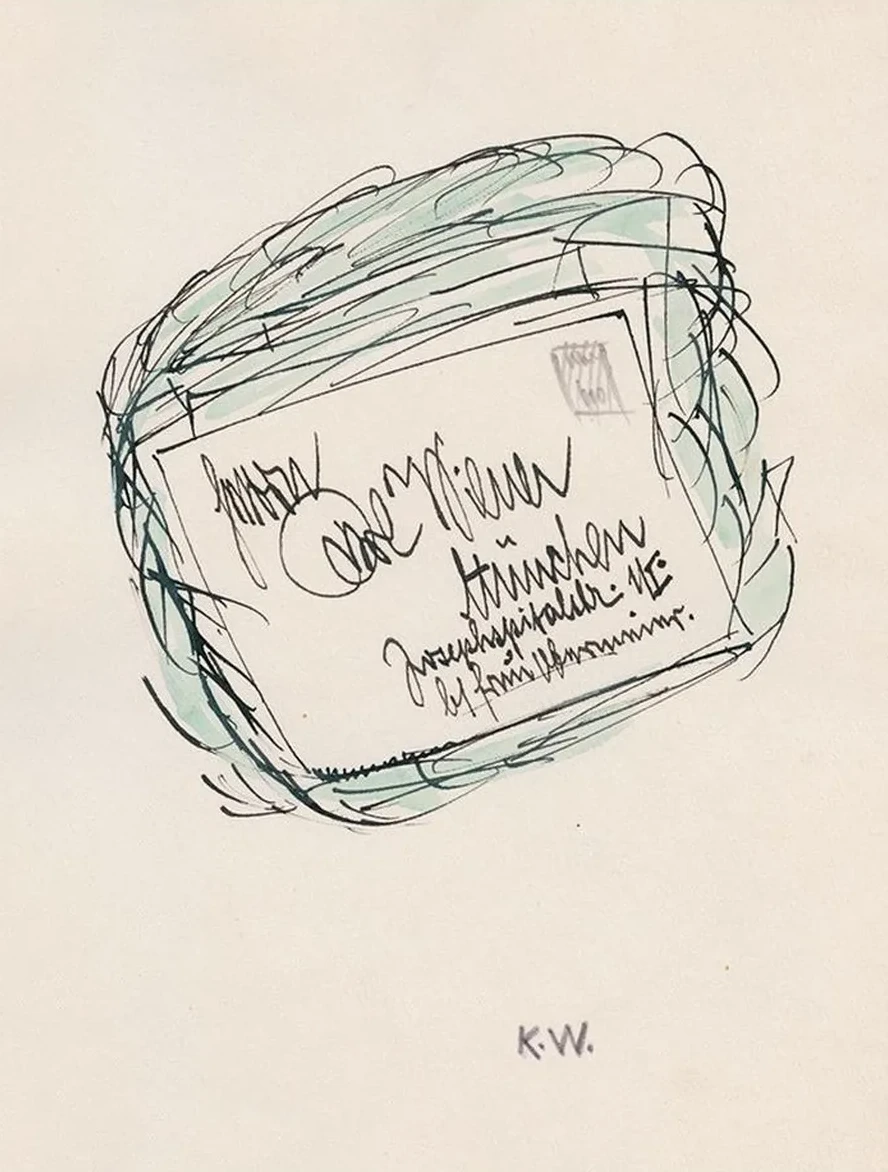 Herrn
Karl Wiener
München
Josephspitalstr. 1/I.
b/ Frau Obermeier.
K.W.